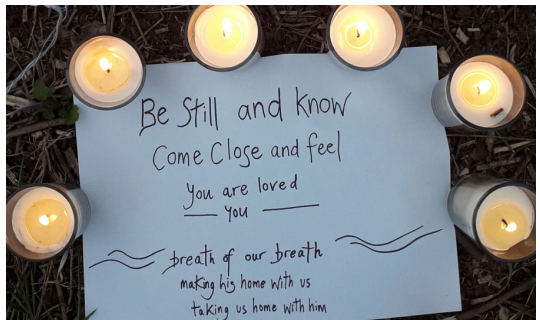 Be Still and know
Come Close and feel
you are loved
you
breath of our breath
making his home with us
taking us home with him